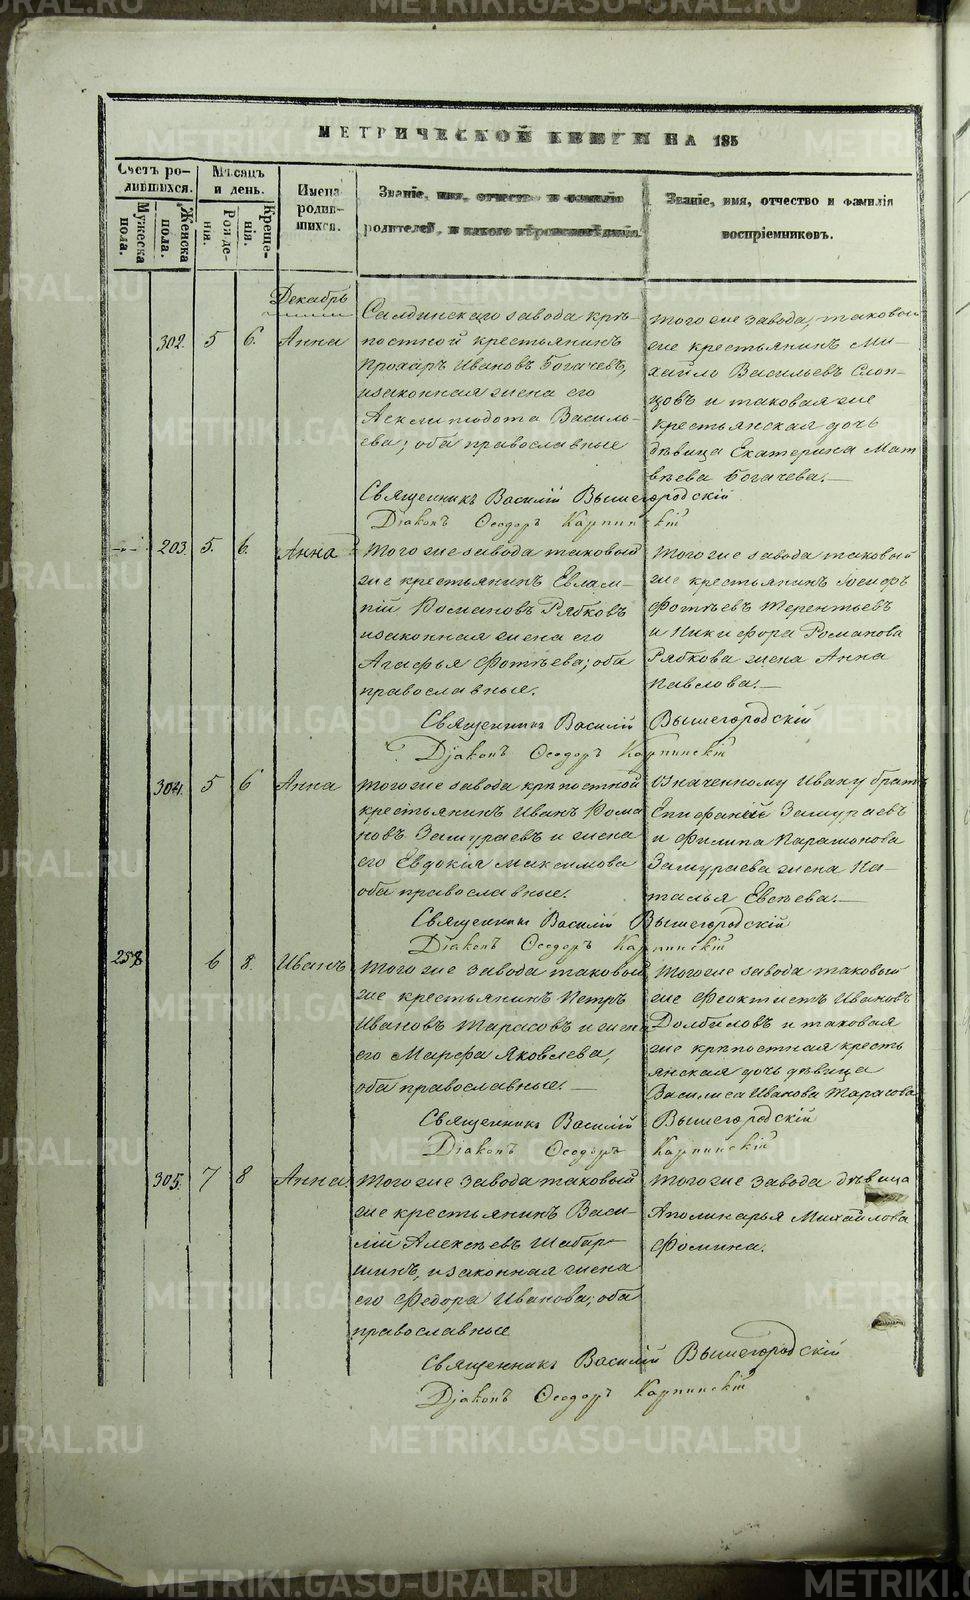 МЕТРИЧЕСКОЙ КНИГИ НА 185
Счетъ ро-
дившихся.
Мужеска
пола.
Женска
пола.
Мѣсяцъ
и день.
Рожде-
нія.
Креще-
нія.
Имена
родив-
шихся.
Званіе, имя, отчество и фамилія
родителей, и какого вѣроисповѣданія.
Званіе, имя, отчество и фамилія
воспріемниковъ.
Декабрь
302. 5 6. Анна
Салдинскаго завода крѣ-
постной крестьянинъ
Прохаръ Ивановъ Богачевъ,
изаконная жена его
Асклипіодота Василь-
ева; оба православные
Того же завода, таковой
же крестьянинъ Ми-
хайло Васильевъ Слоп-
цовъ и таковая же
крестьянская дочь
дѣвица Екатерина Мат
вѣева Богачева.—
Священникъ Василій Вышегородскій
Діаконъ Ѳеодоръ Карпинскій
203. 5. 6. Анна
Того же завода таковый
же крестьянинъ Евлам-
пій Романовъ Рябковъ
изаконная жена его
Агафья Фотѣева; оба
православные.
Того же завода таковый
же крестьянинъ
Фотѣевъ Терентьевъ
и Никифора Романова
Рябкова жена Анна
Павлова.—
Священникъ Василій Вышегородскій
Діаконъ Ѳеодоръ Карпинскій
304. 5 6 Анна
Того же завода крѣпостной
крестьянинъ Иванъ Рома
новъ Замураевъ и жена
его Евдокія Максимова
оба православные.
Означенному Ивану братъ
Епифаній Замураевъ
и Филипа Парамонова
Замураева жена На-
талья Евсѣева.—
Священникъ Василій Вышегородскій
Діаконъ Ѳеодоръ Карпинскій
258 6 8. Иванъ
Того же завода таковый
же крестьянинъ Петръ
Ивановъ Тарасовъ и жена
его Марфа Яковлева,
оба православные.—
Того же завода таковый
же Феоктистъ Ивановъ
Долбиловъ и таковая
же крѣпостная кресть
янская дочь дѣвица
Василиса Иванова Тарасова
Священникъ Василій Вышегородскій
Діаконъ Ѳеодоръ Карпинскій
305. 7 8 Анна
Того же завода таковый
же крестьянинъ Васи-
лій Алексѣевъ Шабар-
шинъ, изаконная жена
его Федора Иванова; оба
православные
Того же завода дѣвица
Аполинарья Михайлова
Фомина.
Священникъ Василій Вышегородскій
Діаконъ Ѳеодоръ Карпинскій
METRIKI.GASO-URAL.RU